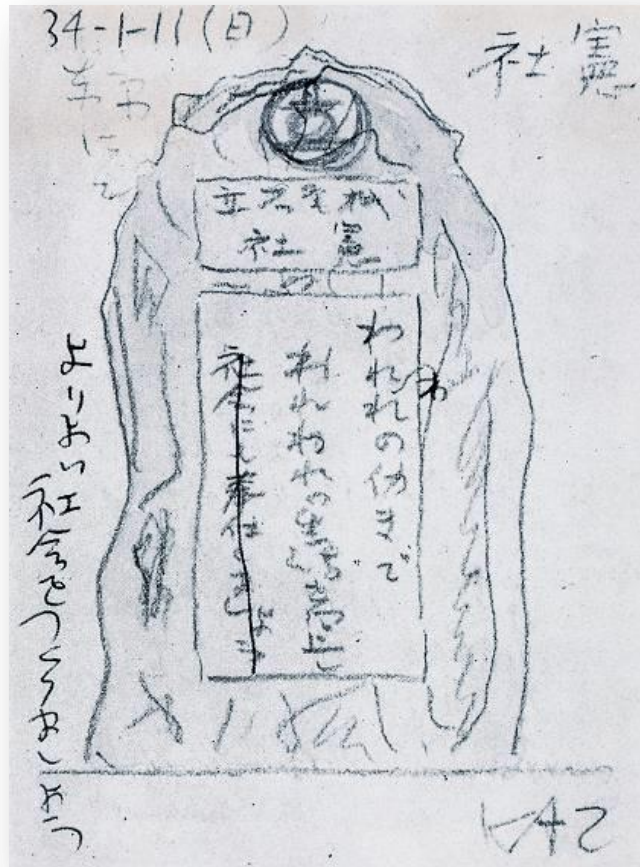 34-1-11(日)
東京
にて
社憲
立石電機
社憲
われわれの仂きで
われわれの生活を向上し
社会にも奉仕しましょう
よりよい社会をつくりましょう